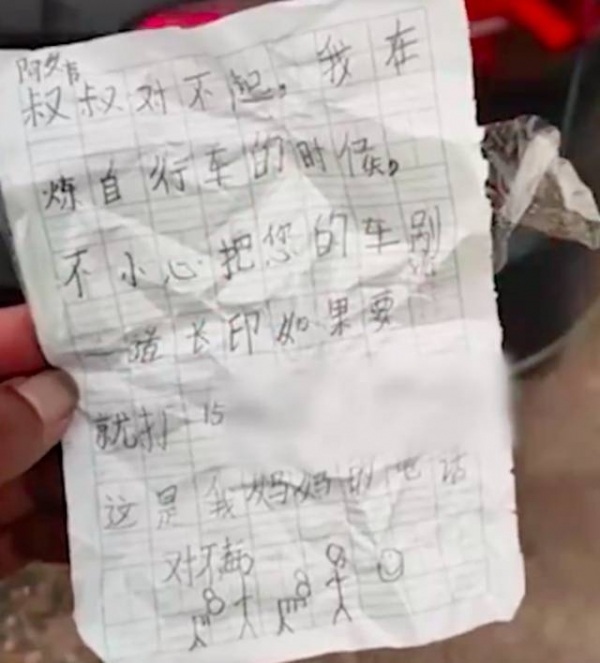 阿姨
叔叔对不起。我在
炼自行车的时候。
不小心把您的车刮
一道长印如果要
就打 15
这是我妈妈的电话
对不起